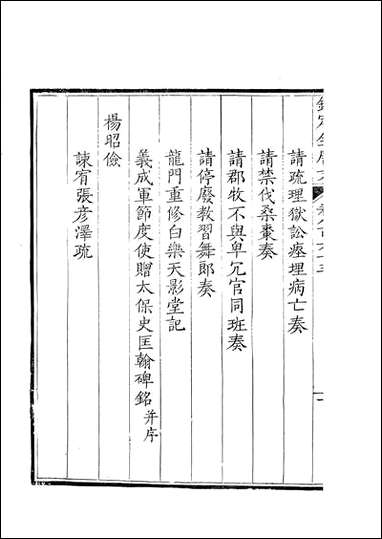 請疏理獄訟瘞埋病亡奏
請禁伐桑棗奏
請郡牧不與卑冗官同班奏
請停廢教習舞郎奏
龍門重修白樂天影堂記
義成軍節度使贈太保史匡翰碑銘并序
楊昭儉
諫宥張彥澤疏